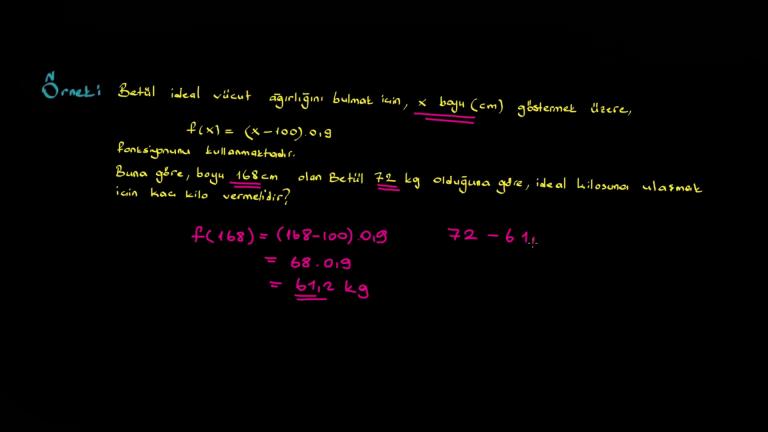 Örnek: Betül ideal vücut ağırlığını bulmak için, x boyu (cm) göstermek üzere,
f(x) = (x-100).0,9
fonksiyonunu kullanmaktadır.
Buna göre, boyu 168 cm olan Betül 72 kg olduğuna göre, ideal kilosuna ulaşmak
için kaç kilo vermelidir?
f(168) = (168-100).0,9 72 - 61,
= 68.0,9
= 61,2 kg